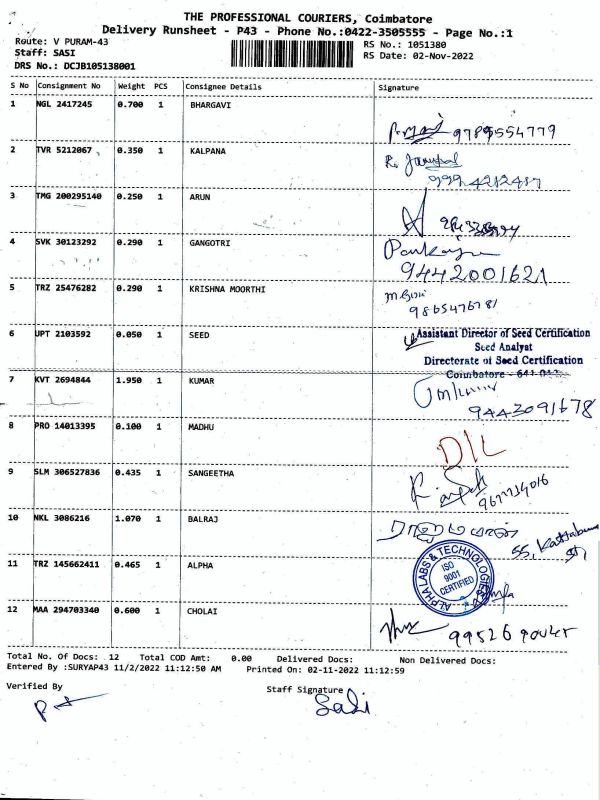 THE PROFESSIONAL COURIERS, Coimbatore
Delivery Runsheet - P43 - Phone No.:0422-3505555 - Page No.:1
Route: V PURAM-43
RS No.: 1051380
Staff: SASI
RS Date: 02-Nov-2022
DRS No.: DCJB105138001
S No Consignment No Weight PCS Consignee Details Signature
1 NGL 2417245 0.700 1 BHARGAVI
9789554779
2 TVR 5212067 0.350 1 KALPANA
9994212417
3 TMG 200295140 0.250 1 ARUN
4 SVK 30123292 0.290 1 GANGOTRI
9442001621
5 TRZ 25476282 0.290 1 KRISHNA MOORTHI
9865476781
6 UPT 2103592 0.050 1 SEED
Assistant Director of Seed Certification
Seed Analyst
Directorate of Seed Certification
Coimbatore - 641 013
7 KVT 2694844 1.950 1 KUMAR
9443091678
8 PRO 14013395 0.100 1 MADHU
9 SLM 306527836 0.435 1 SANGEETHA
10 NKL 3086216 1.070 1 BALRAJ
11 TRZ 145662411 0.465 1 ALPHA
ALPHA LABS & TECHNOLOGIES
ISO
9001
CERTIFIED
12 MAA 294703340 0.600 1 CHOLAI
Total No. Of Docs: 12 Total COD Amt: 0.00 Delivered Docs: Non Delivered Docs:
Entered By :SURYAP43 11/2/2022 11:12:50 AM Printed On: 02-11-2022 11:12:59
Verified By
Staff Signature
Sasi